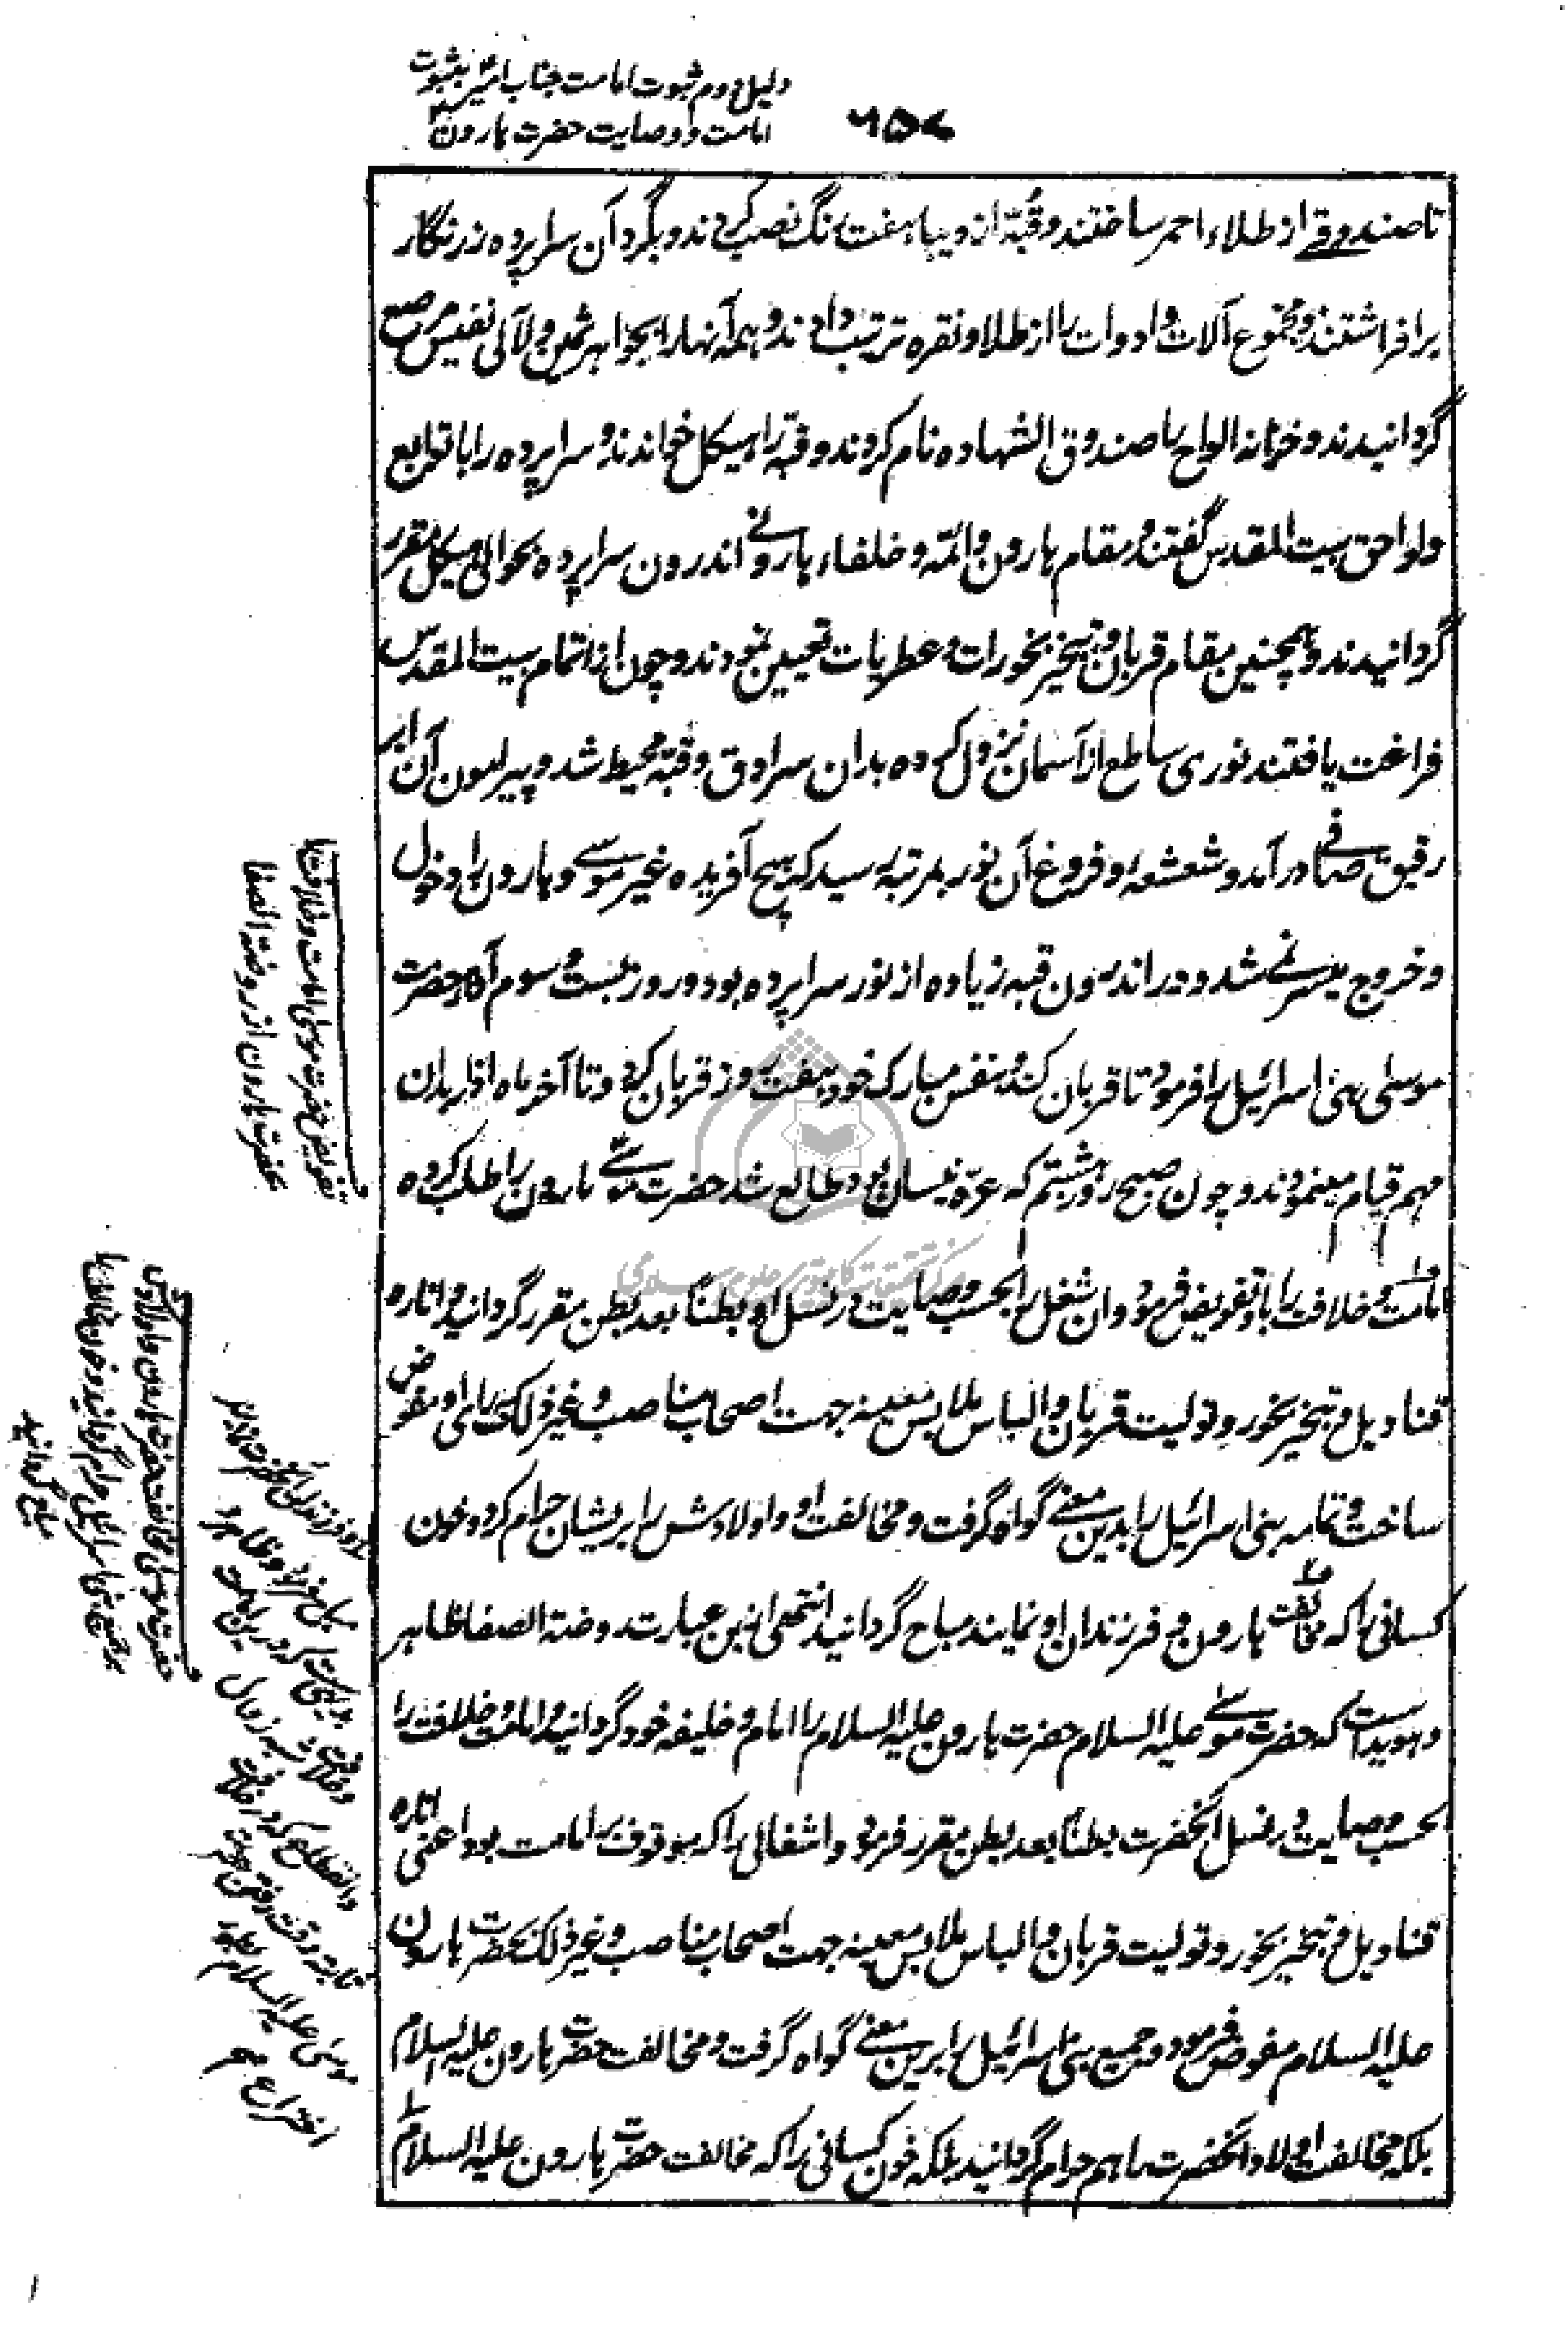 دلیل دوم ثبوت امامت جناب امیرؑ بثبوت
امامت و وصایت حضرت هارونؑ
۶۵۷
تا صندوقے از طلاء احمر ساختند و قبّهٔ از دیباء هفت رنگ نصب کردند و بگرد آن سراپرده زرنگار
برافراشتند و مجموع آلات و ادوات را از طلا و نقره ترتیب دادند و همه آنها را بجواهر ثمین و لآلی نفیس مرصع
گردانیدند و خزانه الواح را صندوق الشهاده نام کردند و قبّه را هیکل خواندند و سراپرده را با توابع
و لواحق بیت المقدس گفتند و مقام هارون و ائمّه و خلفاء هارونے اندرون سراپرده بحوالی هیکل مقرر
گردانیدند و همچنین مقام قربان و تبخیر بخورات و عطریات تعیین نمودند و چون از اتمام بیت المقدس
فراغت یافتند نوری ساطع از آسمان نزول کرده بدان سرادق و قبّه محیط شد و پیرامون آن ابر
رقیق صافے درآمد و شعشعه و فروغ آن نور بمرتبه رسید که هیچ آفریده غیر موسے و هارون را دخول
و خروج میسر نے شد و در اندرون قبه زیاده از نور سراپرده بود و روز بیست و سوم آذار حضرت
موسی بنی اسرائیل را فرمود تا قربان کنند و بنفس مبارک خود هفت روز قربان کرد و تا آخر ماه اذار بدان
مهم قیام مینمودند و چون صبح روز هشتم که غرّه نیسان بود طالع شد حضرت موسے هارون را طلب کرده
امامت و خلافت را باو تفویض فرمود و آن شغل را بحسب وصایت در نسل او بطناً بعد بطن مقرر گردانید و اناره
قنادیل و تبخیر بخور و تولیت قربان و الباس ملابس معینه جهت اصحاب مناصب و غیر ذلک برای او مفوض
ساخت و تمامه بنی اسرائیل را بدین معنے گواه گرفت و مخالفت او و اولادش را بریشان حرام کرد و خون
کسانی را که مخالفت هارون و فرزندان او نمایند مباح گردانید انتهی ازین عبارت روضة الصفا ظاهر
و هویداست که حضرت موسے علیه السلام حضرت هارون علیه السلام را امام و خلیفه خود گردانید و امامت و خلافت را
بحسب وصایت در نسل آنحضرت بطناً بعد بطن مقرر فرمود و اشغالی را که موقوف بر امامت بود اعنی اناره
قنادیل و تبخیر بخور و تولیت قربان و الباس ملابس معینه جهت اصحاب مناصب و غیر ذلک بحضرت هارون
علیه السلام مفوض فرمود و جمیع بنی اسرائیل را برین معنے گواه گرفت و مخالفت حضرت هارون علیه السلام
بلکه مخالفت اولاد آنحضرت را هم حرام گردانید بلکه خون کسانی را که مخالفت حضرت هارون علیه السلام
تفویض حضرت موسی امامت و خلافت را
بحضرت هارون از روضة الصفا
حضرت موسی مخالفت حضرت هارون و اولادش